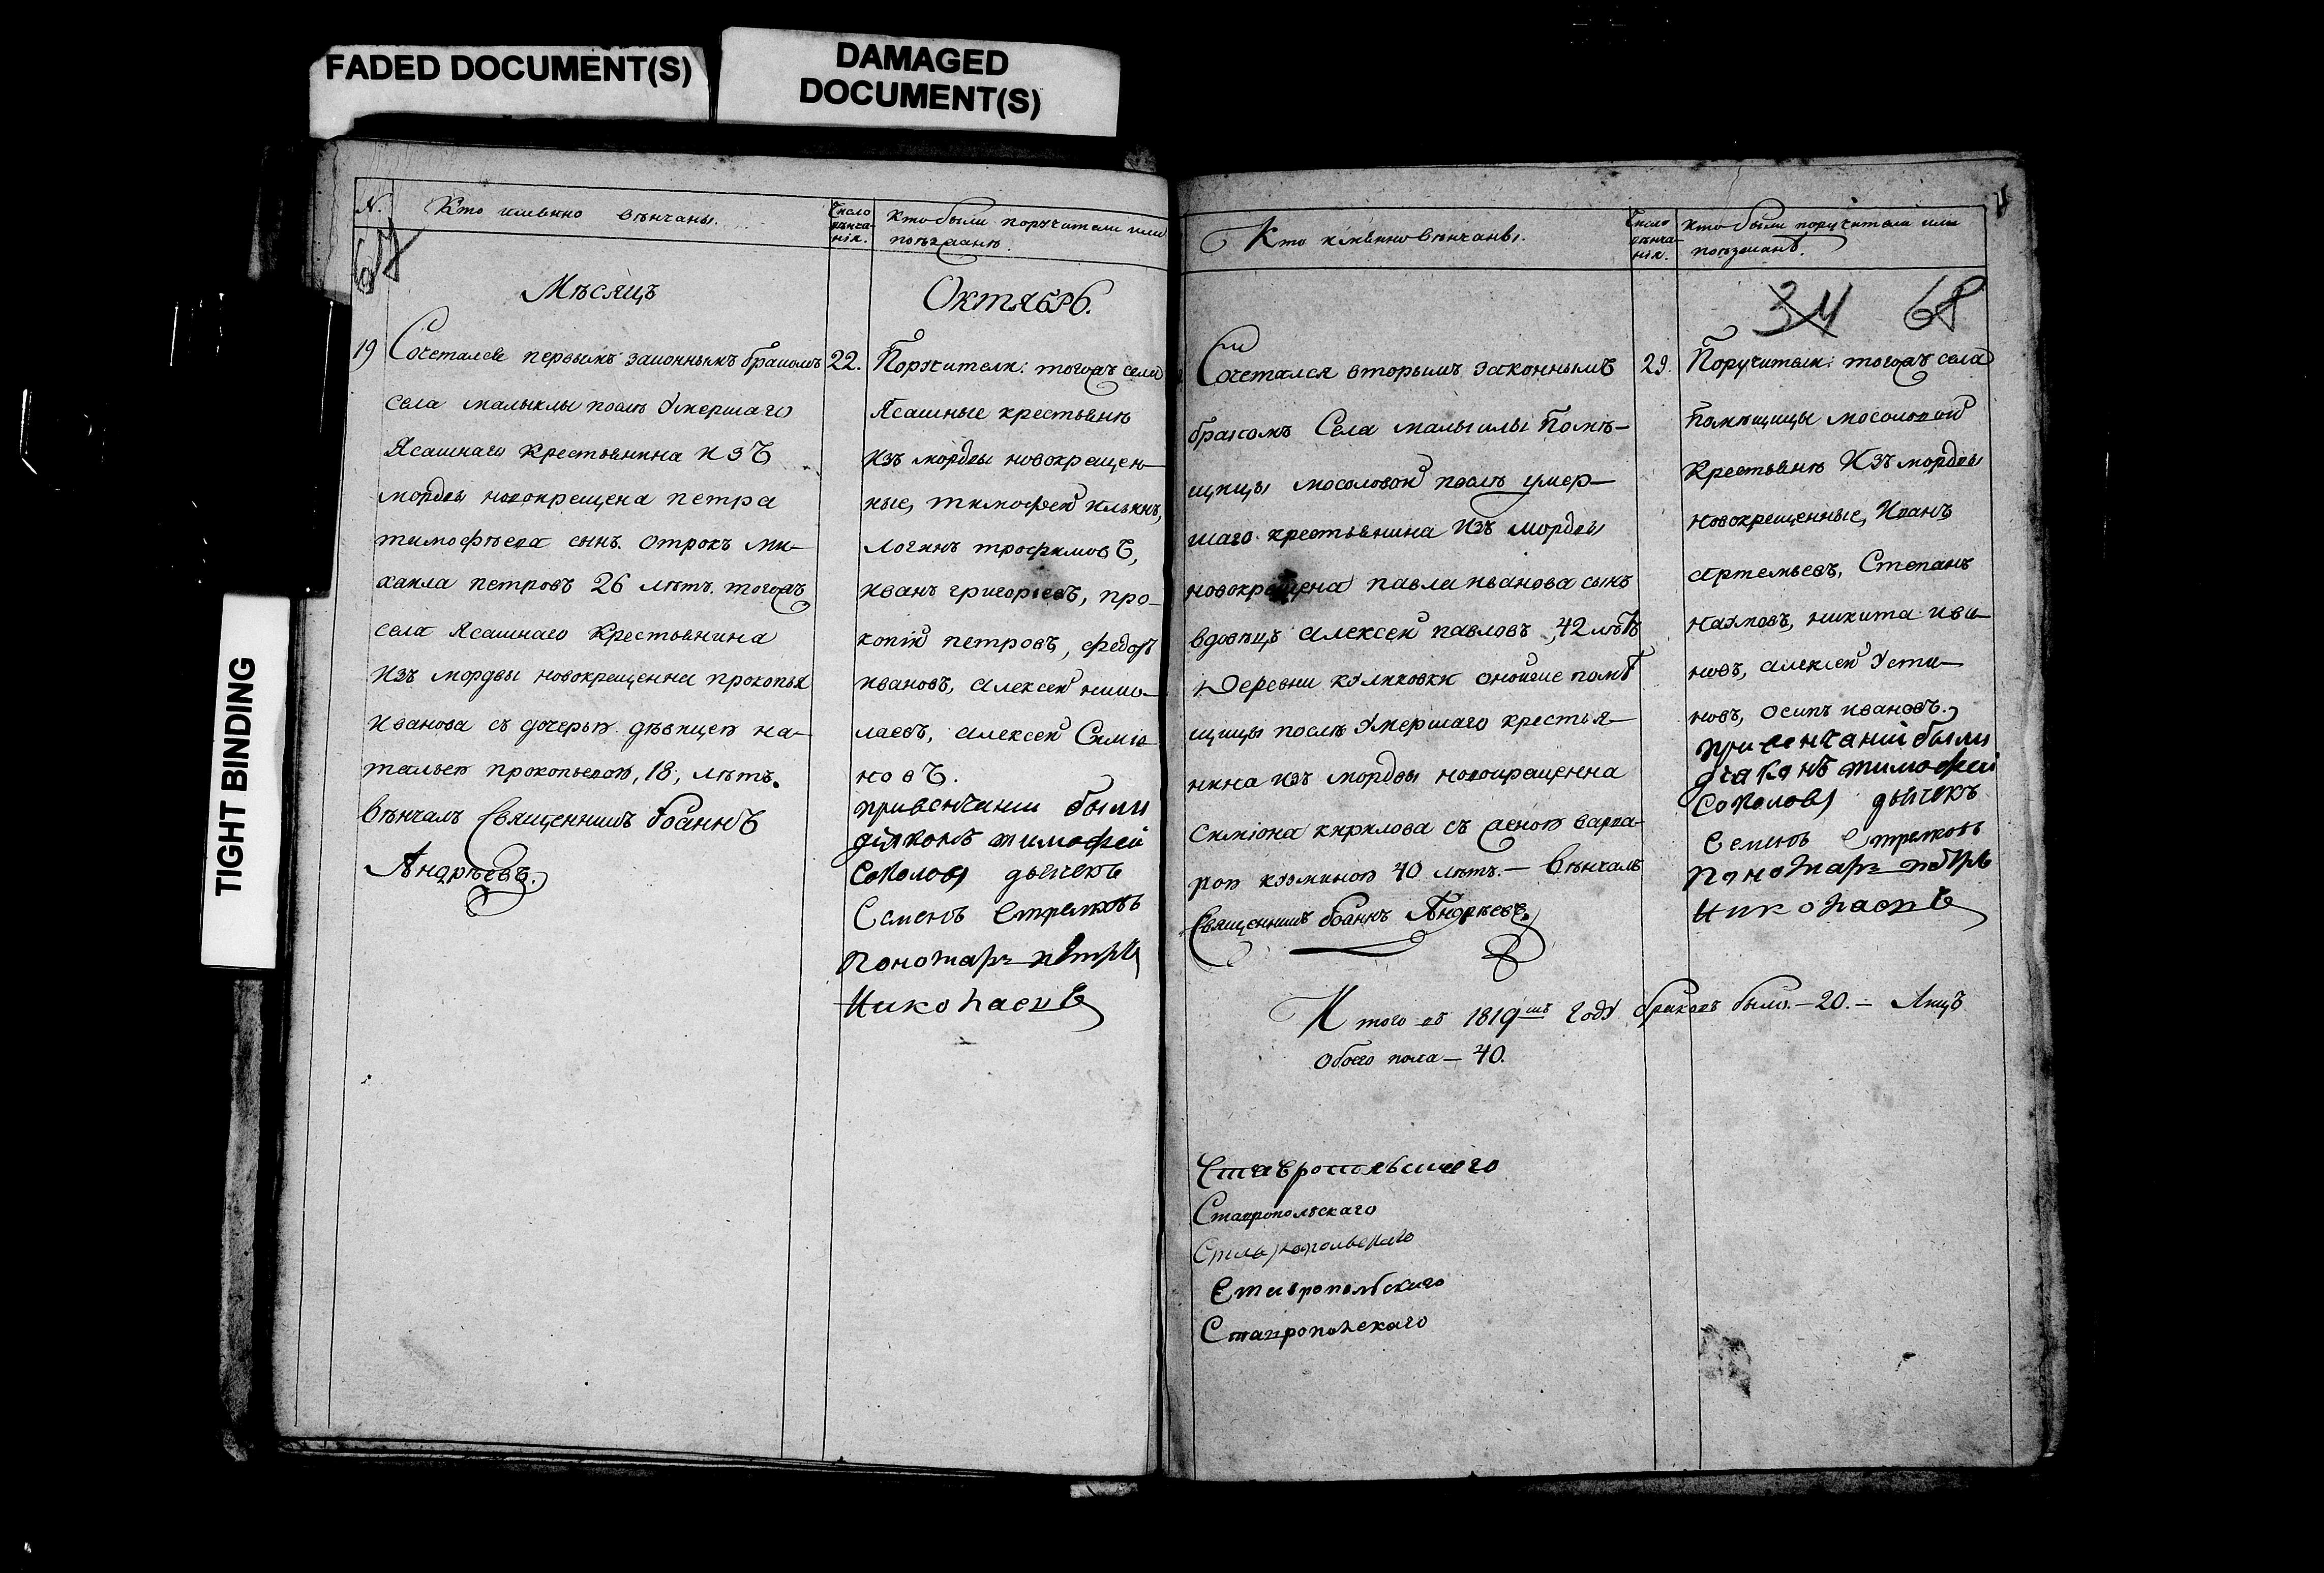 FADED DOCUMENT(S)
DAMAGED
DOCUMENT(S)
TIGHT BINDING
N.
Кто имѣнно вѣнчаны.
Число
вѣнча-
нія.
Кто были поручители или
поѣзжанѣ.
67
Мѣсяцъ
Октябрь.
19
Сочетался первымъ законнымъ бракомъ
села малыклы послѣ Умершаго
Ясашнаго крестьянина изъ
мордвы новокрещена петра
тимофѣева сынъ. отрокъ ми-
хаила петровъ 26 лѣтъ. тогожъ
села Ясашнаго Крестьянина
изъ мордвы новокрещенна прокопья
иванова съ дочерью дѣвицею на-
тальею прокопьевою, 18, лѣтъ.
вѣнчалъ Священникъ Iоаннъ
Андрѣевъ.
22.
Поручители: тогожъ села
Ясашные крестьянѣ
изъ мордвы новокрещен-
ные, тимофей ильинъ,
логинъ трофимовъ,
иванъ григорiевъ, про-
копiй петровъ, федоръ
ивановъ, алексей нико-
лаевъ, алексей Симiо-
новъ.
привенчании были
дiяконъ тимофей
соколовъ дьячекъ
Семенъ Стрелковъ
пономарь петръ
Николаевъ
Кто имѣнно вѣнчаны.
Число
вѣнча-
нія.
Кто были поручители или
поѣзжанѣ.
34 68
Сочетался вторымъ законнымъ
бракомъ Села малыклы Помѣ-
щицы мосоловой послѣ умер-
шаго крестьянина изъ мордвы
новокрещена павла иванова сынъ
вдовѣцъ алексей павловъ, 42 лѣтъ
Деревни куликовки оной же помѣ
щицы послѣ Умершаго крестья-
нина изъ мордвы новокрещенна
симiона кирилова съ женою варва-
рою кузминою 40 лѣтъ. — вѣнчалъ
Священникъ Iоаннъ Андрѣевъ.
29.
Поручители: тогожъ села
помѣщицы мосоловой
крестьянѣ Изъ мордвы
новокрещенные, Иванъ
артемьевъ, Степанъ
наумовъ, никита ива-
новъ, алексей Усти-
новъ, осипъ ивановъ.
при венчании были
дiаконъ тимофей
соколовъ дьячекъ
Семенъ Стрелковъ
пономарь петръ
Николаевъ
Итого въ 1819мъ Году браковъ было. — 20. — Лицъ
обоего пола — 40.
Ставропольскаго
Ставропольскаго
Ставропольскаго
Ставропольскаго
Ставропольскаго